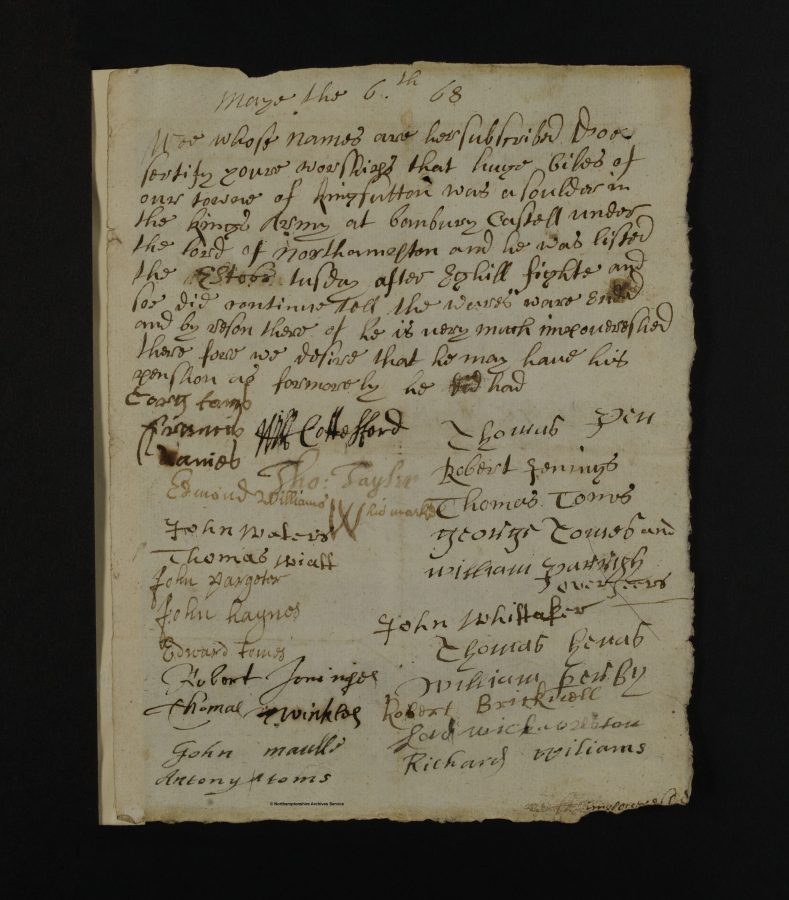 Maye the 6.th 68
Wee whose names are hersubscribed Doe
sertify youre worships that huge biles of
our towne of kingsutton was a soulder in
the kings Army at banbury Castell under
the lord of Northamepton and he was listed
the tusday after Eghill fighte and
soe did continue Tell the wares ware Ended
and by reson there of he is uery much impouereshed
there fore we desire that he may haue his
pension as formorely he had
toms
Francis
James
Will Cottesford
Tho: Taylor
Edmond Williams his marke
John Waters
Thomas Wiatt
John Pargeter
John haynes
Edward tomes
Robert Joninges
Thomas Twinkles
John maulls
Antony toms
Thomas Pen
Robert Jenings
Thomas Toms
george Tomes and
william Parrish
overseers
John Whittaker
Thomas
William
Robert Bricknell
Richard Wiliams
© Northamptonshire Archives Service